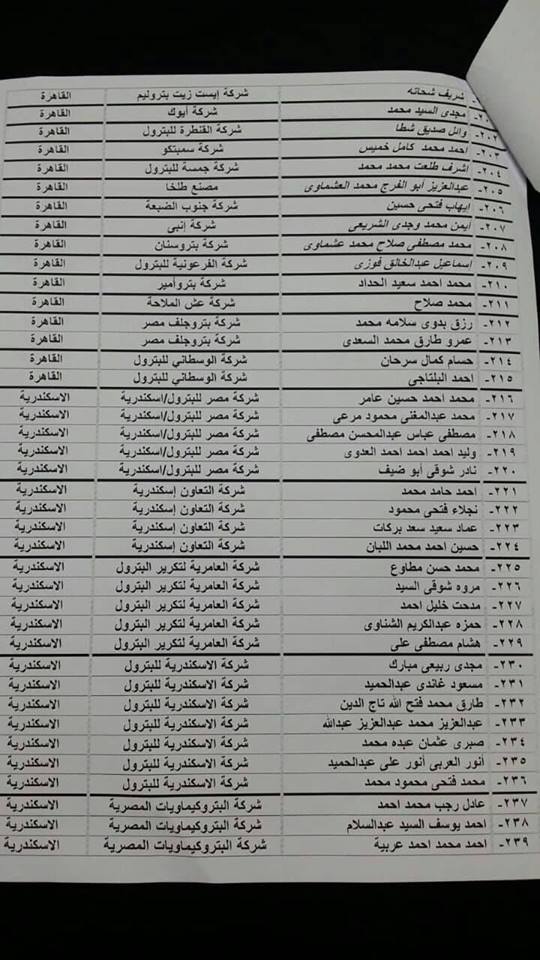 شريف شحاته شركة إيست زيت بتروليم القاهرة
مجدى السيد محمد شركة أيوك القاهرة
٢٠٢- وائل صديق شطا شركة القنطرة للبترول القاهرة
٢٠٣- احمد محمد كامل خميس شركة سمبتكو القاهرة
٢٠٤- اشرف طلعت محمد محمد شركة جمسة للبترول القاهرة
٢٠٥- عبدالعزيز أبو الفرج محمد العشماوى مصنع طلخا القاهرة
٢٠٦- ايهاب فتحى حسين شركة جنوب الضبعة القاهرة
٢٠٧- أيمن محمد وجدى الشريعى شركة إنبى القاهرة
٢٠٨- محمد مصطفي صلاح محمد عشماوى شركة بتروسنان القاهرة
٢٠٩- إسماعيل عبدالخالق فوزى شركة الفرعونية للبترول القاهرة
٢١٠- محمد احمد سعيد الحداد شركة بتروأمير القاهرة
٢١١- محمد صلاح شركة عش الملاحة القاهرة
٢١٢- رزق بدوى سلامه محمد شركة بتروجلف مصر القاهرة
٢١٣- عمرو طارق محمد السعدى شركة بتروجلف مصر القاهرة
٢١٤- حسام كمال سرحان شركة الوسطاني للبترول القاهرة
٢١٥- احمد البلتاجى شركة الوسطاني للبترول القاهرة
٢١٦- محمد احمد حسين عامر شركة مصر للبترول/اسكندرية الاسكندرية
٢١٧- محمد عبدالمغنى محمود مرعى شركة مصر للبترول/اسكندرية الاسكندرية
٢١٨- مصطفى عباس عبدالمحسن مصطفى شركة مصر للبترول/اسكندرية الاسكندرية
٢١٩- وليد احمد احمد احمد العدوى شركة مصر للبترول/اسكندرية الاسكندرية
٢٢٠- نادر شوقى أبو ضيف شركة مصر للبترول/اسكندرية الاسكندرية
٢٢١- احمد حامد محمد شركة التعاون إسكندرية الاسكندرية
٢٢٢- نجلاء فتحى محمود شركة التعاون إسكندرية الاسكندرية
٢٢٣- عماد سعيد سعد بركات شركة التعاون إسكندرية الاسكندرية
٢٢٤- حسين احمد محمد اللبان شركة التعاون إسكندرية الاسكندرية
٢٢٥- محمد حسن مطاوع شركة العامرية لتكرير البترول الاسكندرية
٢٢٦- مروه شوقى السيد شركة العامرية لتكرير البترول الاسكندرية
٢٢٧- مدحت خليل احمد شركة العامرية لتكرير البترول الاسكندرية
٢٢٨- حمزه عبدالكريم الشناوى شركة العامرية لتكرير البترول الاسكندرية
٢٢٩- هشام مصطفى على شركة العامرية لتكرير البترول الاسكندرية
٢٣٠- مجدى ربيعى مبارك شركة الاسكندرية للبترول الاسكندرية
٢٣١- مسعود غاندى عبدالحميد شركة الاسكندرية للبترول الاسكندرية
٢٣٢- طارق محمد فتح الله تاج الدين شركة الاسكندرية للبترول الاسكندرية
٢٣٣- عبدالعزيز محمد عبدالعزيز عبدالله شركة الاسكندرية للبترول الاسكندرية
٢٣٤- صبرى عثمان عبده محمد شركة الاسكندرية للبترول الاسكندرية
٢٣٥- أنور العربى أنور على عبدالحميد شركة الاسكندرية للبترول الاسكندرية
٢٣٦- محمد فتحى محمود محمد شركة الاسكندرية للبترول الاسكندرية
٢٣٧- عادل رجب محمد احمد شركة البتروكيماويات المصرية الاسكندرية
٢٣٨- احمد يوسف السيد عبدالسلام شركة البتروكيماويات المصرية الاسكندرية
٢٣٩- احمد محمد احمد عربية شركة البتروكيماويات المصرية الاسكندرية